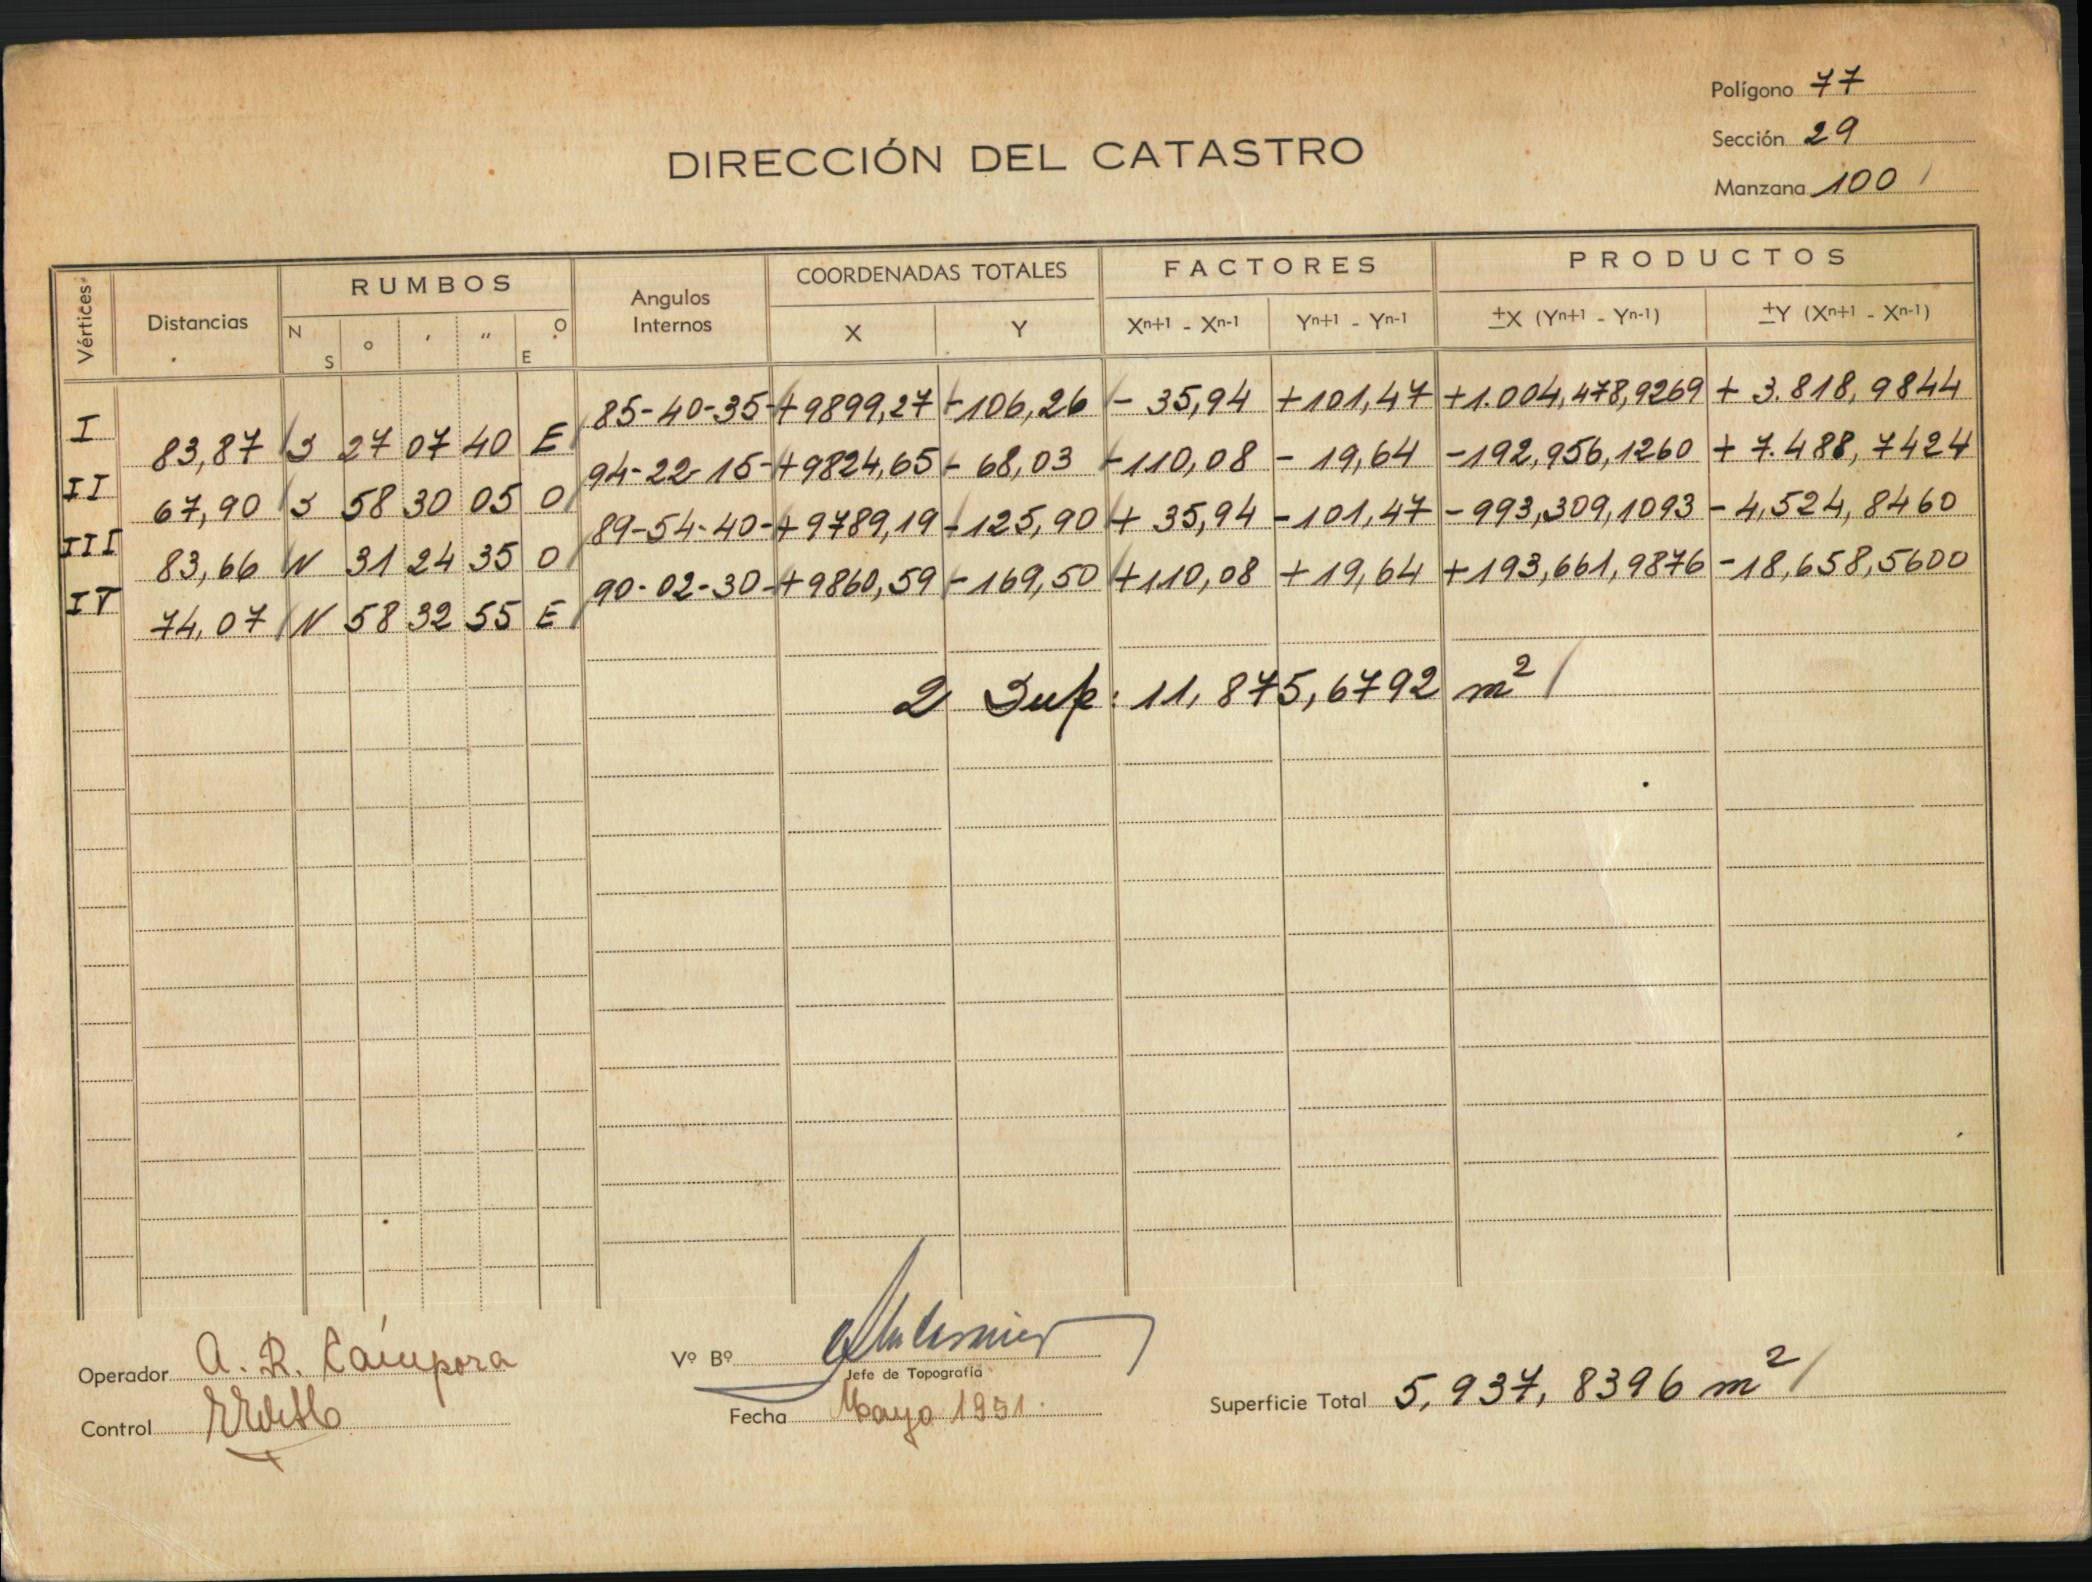 Polígono 77
Sección 29
Manzana 100
DIRECCIÓN DEL CATASTRO
Vértices Distancias RUMBOS Angulos Internos COORDENADAS TOTALES FACTORES PRODUCTOS
N S ° ' " O E X Y Xn+1 - Xn-1 Yn+1 - Yn-1 ±X (Yn+1 - Yn-1) ±Y (Xn+1 - Xn-1)
I 85-40-35 +9899,27 -106,26 - 35,94 +101,47 +1.004,478,9269 + 3.818,9844
83,87 S 27 07 40 E
II 94-22-15 +9824,65 - 68,03 -110,08 - 19,64 -192,956,1260 + 7.488,7424
67,90 S 58 30 05 O
III 89-54-40 +9789,19 -125,90 + 35,94 -101,47 -993,309,1093 - 4,524,8460
83,66 N 31 24 35 O
IV 90-02-30 +9860,59 -169,50 +110,08 +19,64 +193,661,9876 -18,658,5600
74,07 N 58 32 55 E
2 Sup: 11,875,6792 m²
Operador A. R. Cámpora
Vº Bº
Jefe de Topografía
Control
Fecha Mayo 1951.
Superficie Total 5,937,8396 m²